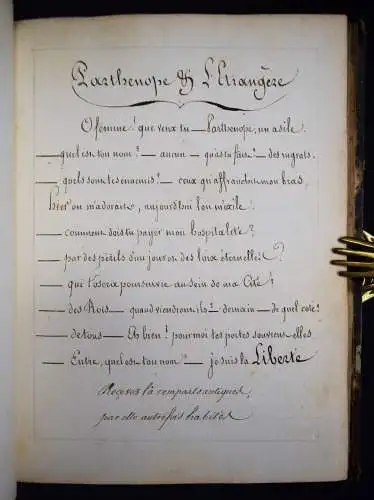 Parthenope & L'Etrangère
O femme! que veux tu — Parthenope, un asile.
— quel est ton nom? — aucun — qu'as tu fais? — des ingrats.
— quels sont tes ennemis? — ceux qu'affranchit mon bras,
hier on m'adorait, aujourd'hui l'on m'exile.
— comment dois tu payer mon hospitalité?
— par des périls d'un jour et des loix éternelles?
— qui t'osera poursuivre au sein de ma Cité?
— des Rois — quand viendront ils? — demain — de quel coté?
— de tous — Eh bien! pour moi tes portes s'ouvrent elles
— Entre, quel est ton nom? — je suis la Liberté
Recevez la remparts antiques,
par elle autrefois habités